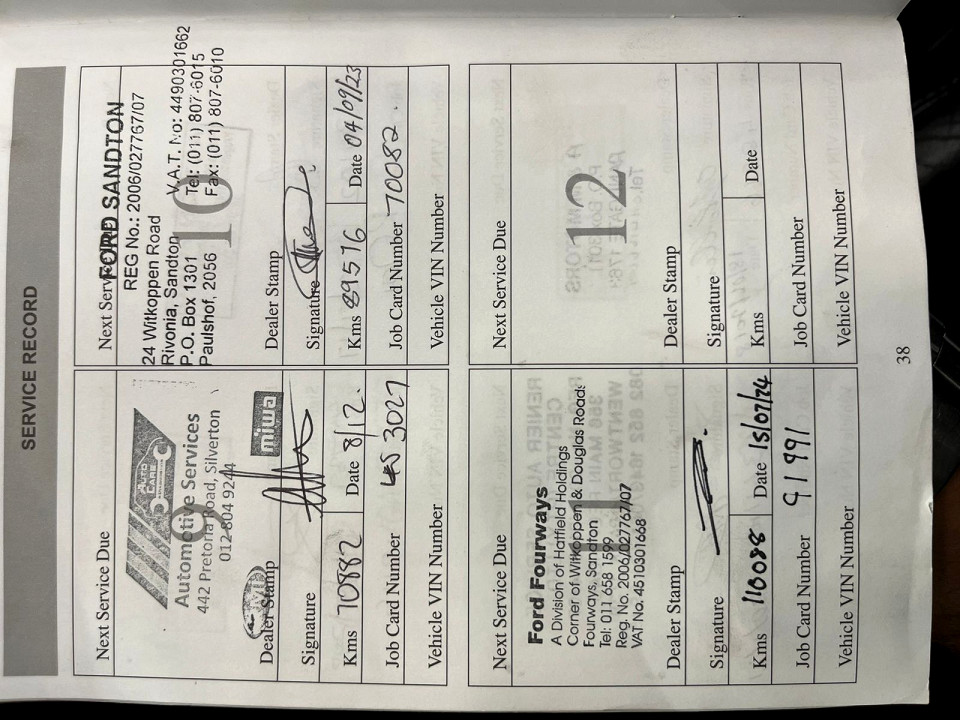 SERVICE RECORD
Next Service Due
9
AUTO
CARE
Automotive Services
442 Pretoria Road, Silverton
012-804 9244
miwa
Dealer Stamp
Signature
Kms 70882 Date 8/12.
Job Card Number 45 3027
Vehicle VIN Number
Next Service Due
FORD SANDTON
REG No.: 2006/027767/07
24 Witkoppen Road
Rivonia, Sandton V.A.T. No: 4490301662
P.O. Box 1301 Tel: (011) 807-6015
Paulshof, 2056 Fax: (011) 807-6010
10
Dealer Stamp
Signature
Kms 89576 Date 04/09/23
Job Card Number 70082.
Vehicle VIN Number
Next Service Due
11
Ford Fourways
A Division of Hatfield Holdings
Corner of Witkoppen & Douglas Roads
Fourways, Sandton
Tel: 011 658 1599
Reg. No. 2006/027767/07
VAT No. 4510301668
Dealer Stamp
Signature
Kms 110088 Date 15/07/24
Job Card Number 91991
Vehicle VIN Number
Next Service Due
12
Dealer Stamp
Signature
Kms Date
Job Card Number
Vehicle VIN Number
38